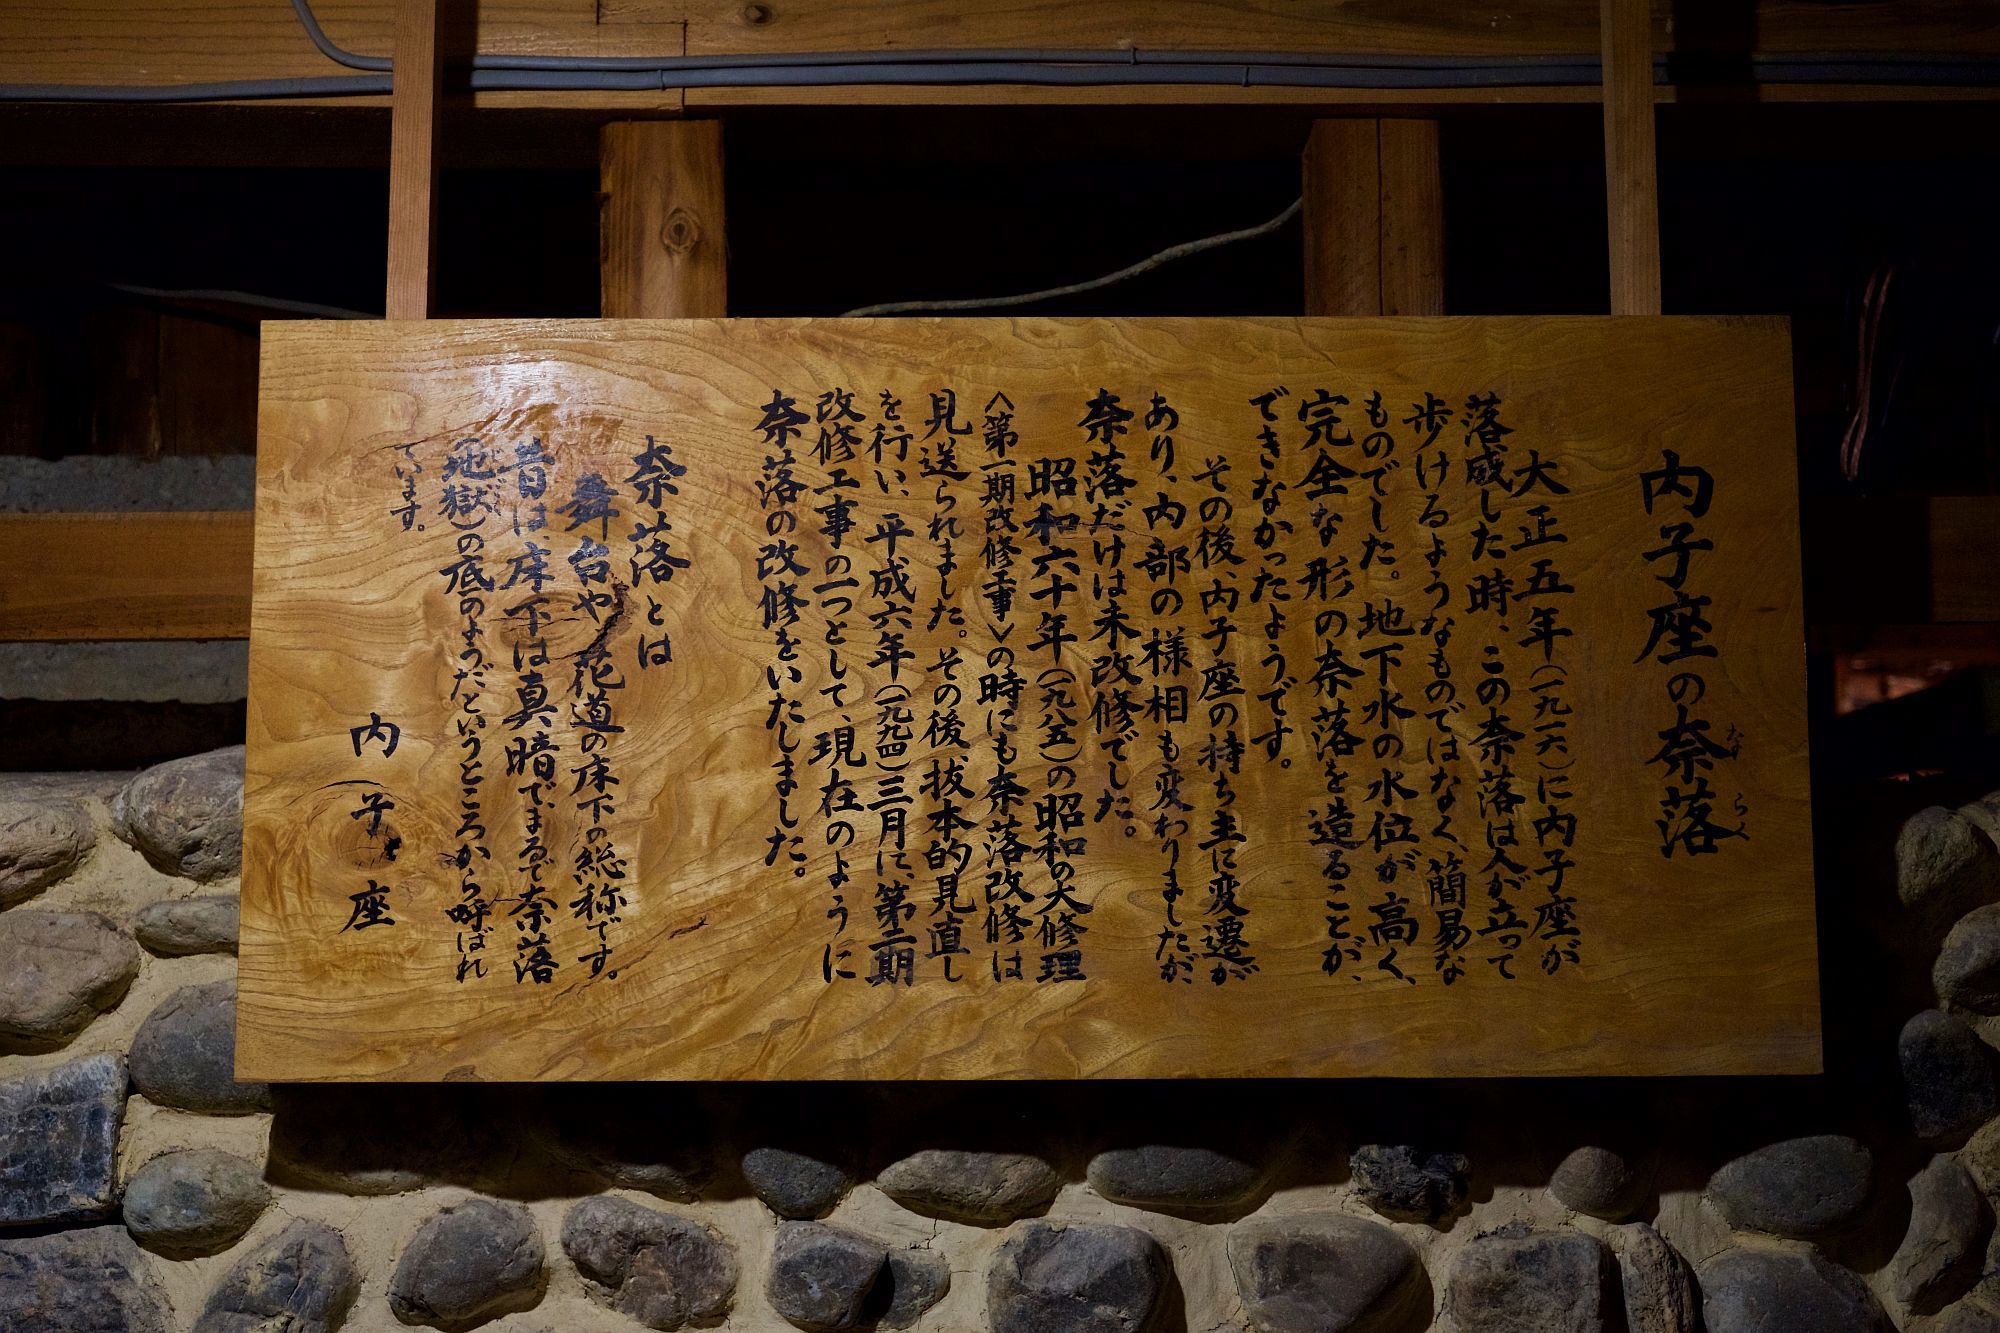 内子座の奈落
ならく
大正五年(一九一六)に内子座が
落成した時、この奈落は人が立って
歩けるようなものではなく、簡易な
ものでした。地下水の水位が高く、
完全な形の奈落を造ることが、
できなかったようです。
その後、内子座の持ち主に変遷が
あり、内部の様相も変わりましたが、
奈落だけは未改修でした。
昭和六十年(一九八五)の昭和の大修理
〈第一期改修工事〉の時にも奈落改修は
見送られました。その後、抜本的見直し
を行い、平成六年(一九九四)三月に、第二期
改修工事の一つとして、現在のように
奈落の改修をいたしました。
奈落とは
舞台や花道の床下の総称です。
昔は、床下は真暗で、まるで奈落
(地獄)の底のようだというところから呼ばれ
ています。
内子座